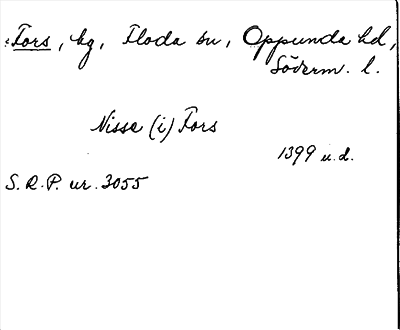 Fors, by, Floda sn, Oppunda hd,
Söderm. l.
Nisse (i) Fors
1399 u.d.
S.R.P. nr. 3055